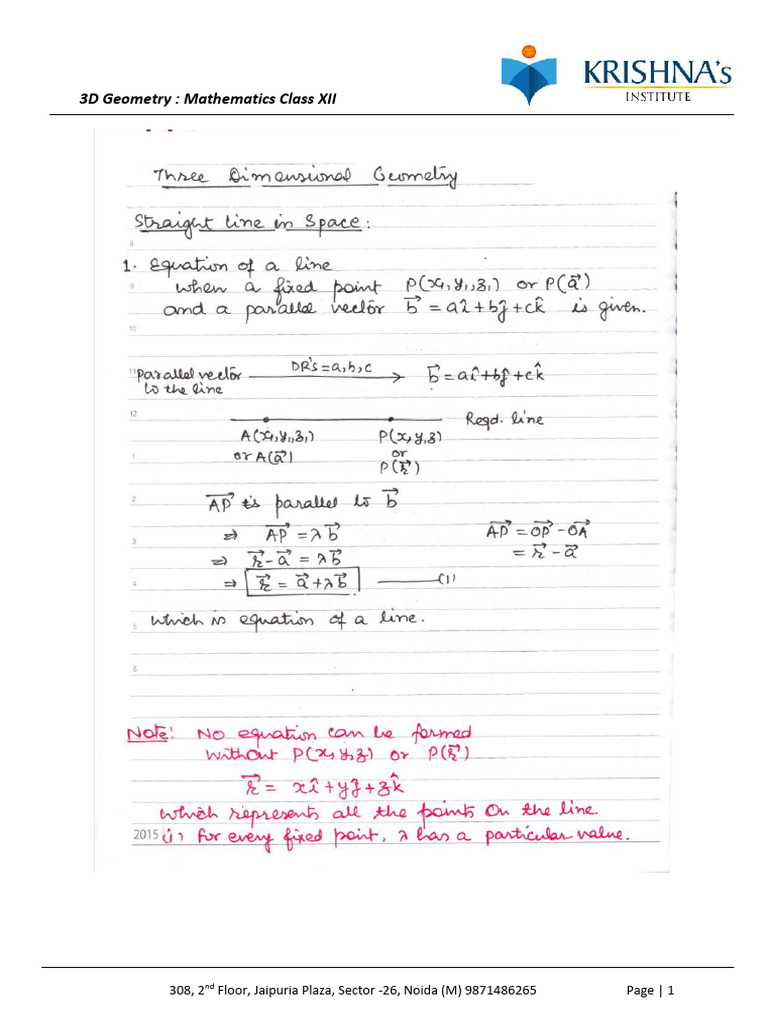 KRISHNA's
INSTITUTE
3D Geometry : Mathematics Class XII
Three Dimensional Geometry
Straight line in Space:
8
1. Equation of a line
9 when a fixed point P(x₁, y₁, z₁) or P(a⃗)
and a parallel vector b⃗ = aî+bĵ+ck̂ is given.
10
11 Parallel vector DR's = a, b, c b⃗ = aî+bĵ+ck̂
to the line
12 Reqd. line
A(x₁, y₁, z₁) P(x, y, z)
1 or A(a⃗) or
P(r⃗)
2 AP⃗ is parallel to b⃗
3 ⇒ AP⃗ = λb⃗ AP⃗ = OP⃗ - OA⃗
⇒ r⃗-a⃗ = λb⃗ = r⃗ - a⃗
4 ⇒ r⃗ = a⃗+λb⃗ (1)
5 which is equation of a line.
6
Note: No equation can be formed
without P(x, y, z) or P(r⃗)
r⃗ = xî+yĵ+zk̂
which represents all the points on the line.
2015 (i) For every fixed point, λ has a particular value.
308, 2nd Floor, Jaipuria Plaza, Sector -26, Noida (M) 9871486265 Page | 1